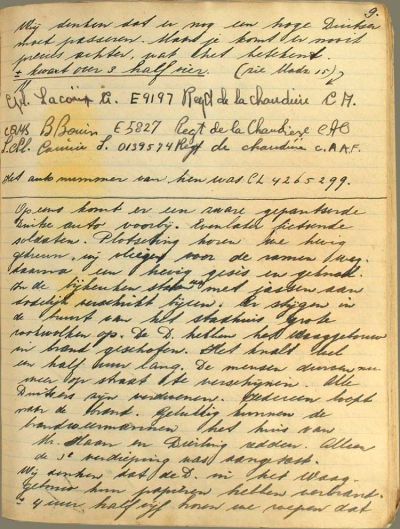 9.
Wij denken dat er nog een hoge Duitser
moet passeren. Want je komt er nooit
precies achter, wat het betekent.
± kwart over 3 half vier. (zie bladz 15)
Cpl. Lacoup G. E9197 Regt de la Chaudière C.M.
B Bouin E5827 Regt de la Chaudière CAO
L.Cpl. L. 0139574 Regt de chaudière C.A.A.F.
Het auto nummer van hen was CL 4265299.
Op eens komt er een rare gepantserde
Duitse auto voorbij. Even later fietsende
soldaten. Plotseling horen we hevig
geknal, wij vliegen voor de ramen weg.
daarna een hevig gesis en geknal.
In de bijkeuken staan we met jassen aan
dodelijk verschrikt bijeen. Er stijgen in
de buurt van het stadhuis grote
rookwolken op. De D. hebben het Waaggebouw
in brand geschoten. Het knalt wel
een half uur lang. De mensen durven nu
meer op straat te verschijnen. Alle
Duitsers zijn verdwenen. Iedereen loopt
naar de brand. Gelukkig kunnen de
brandweermannen het huis van
Haan en redden. Alleen
de 3e verdieping was aangetast.
Wij denken dat de D. in het Waag-
gebouw hun papieren hebben verbrand.
± 4 uur, half vijf horen we roepen dat